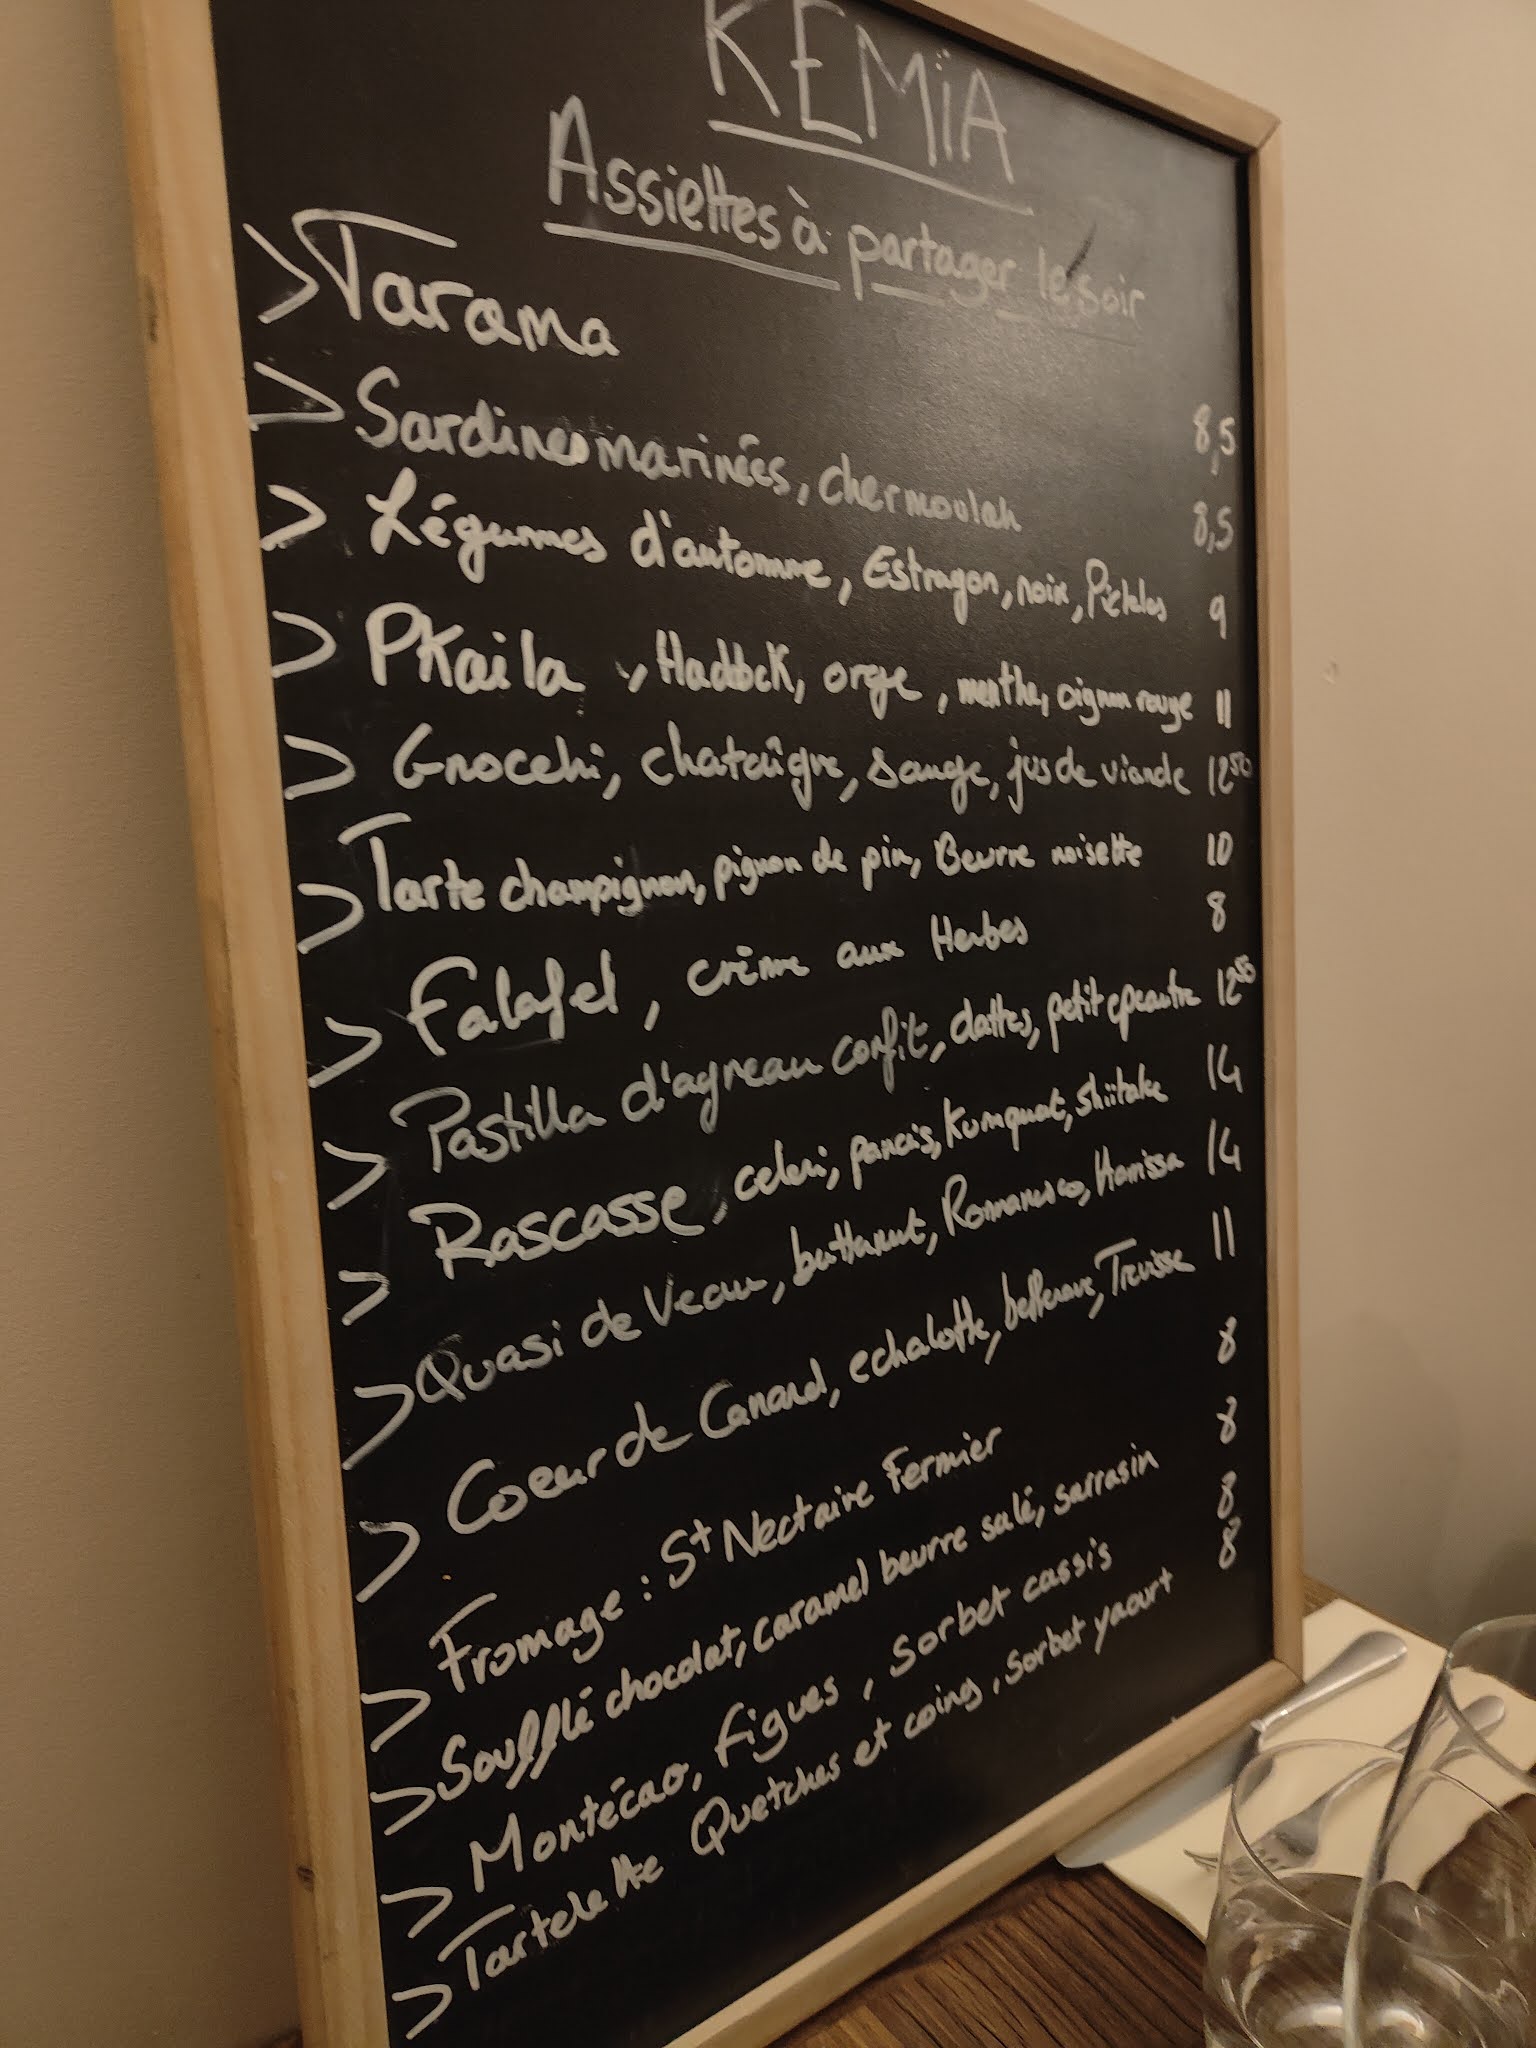 KEMiA
Assiettes à partager le soir
> Tarama 8,5
> Sardines marinées, chermoulah 8,5
> Légumes d'automne, Estragon, noix, Pickles 9
> PKaila, Haddock, orge, menthe, oignon rouge 11
> Gnocchi, chataîgne, sauge, jus de viande 12⁵⁰
> Tarte champignon, pignon de pin, Beurre noisette 10
> Falafel, crème aux Herbes 8
> Pastilla d'agneau confit, dattes, petit epeautre 12⁵⁰
> Rascasse, celeri, panais, Kumquat, shiitake 14
> Quasi de Veau, butternut, Romanesco, Harissa 14
> Coeur de Canard, echalotte, betterave, Trevisse 11
> Fromage : St Nectaire Fermier 8
> Soufflé chocolat, caramel beurre salé, sarrasin 8
> Montécao, figues, sorbet cassis 8
> Tartelette Quetches et coings, sorbet yaourt 8